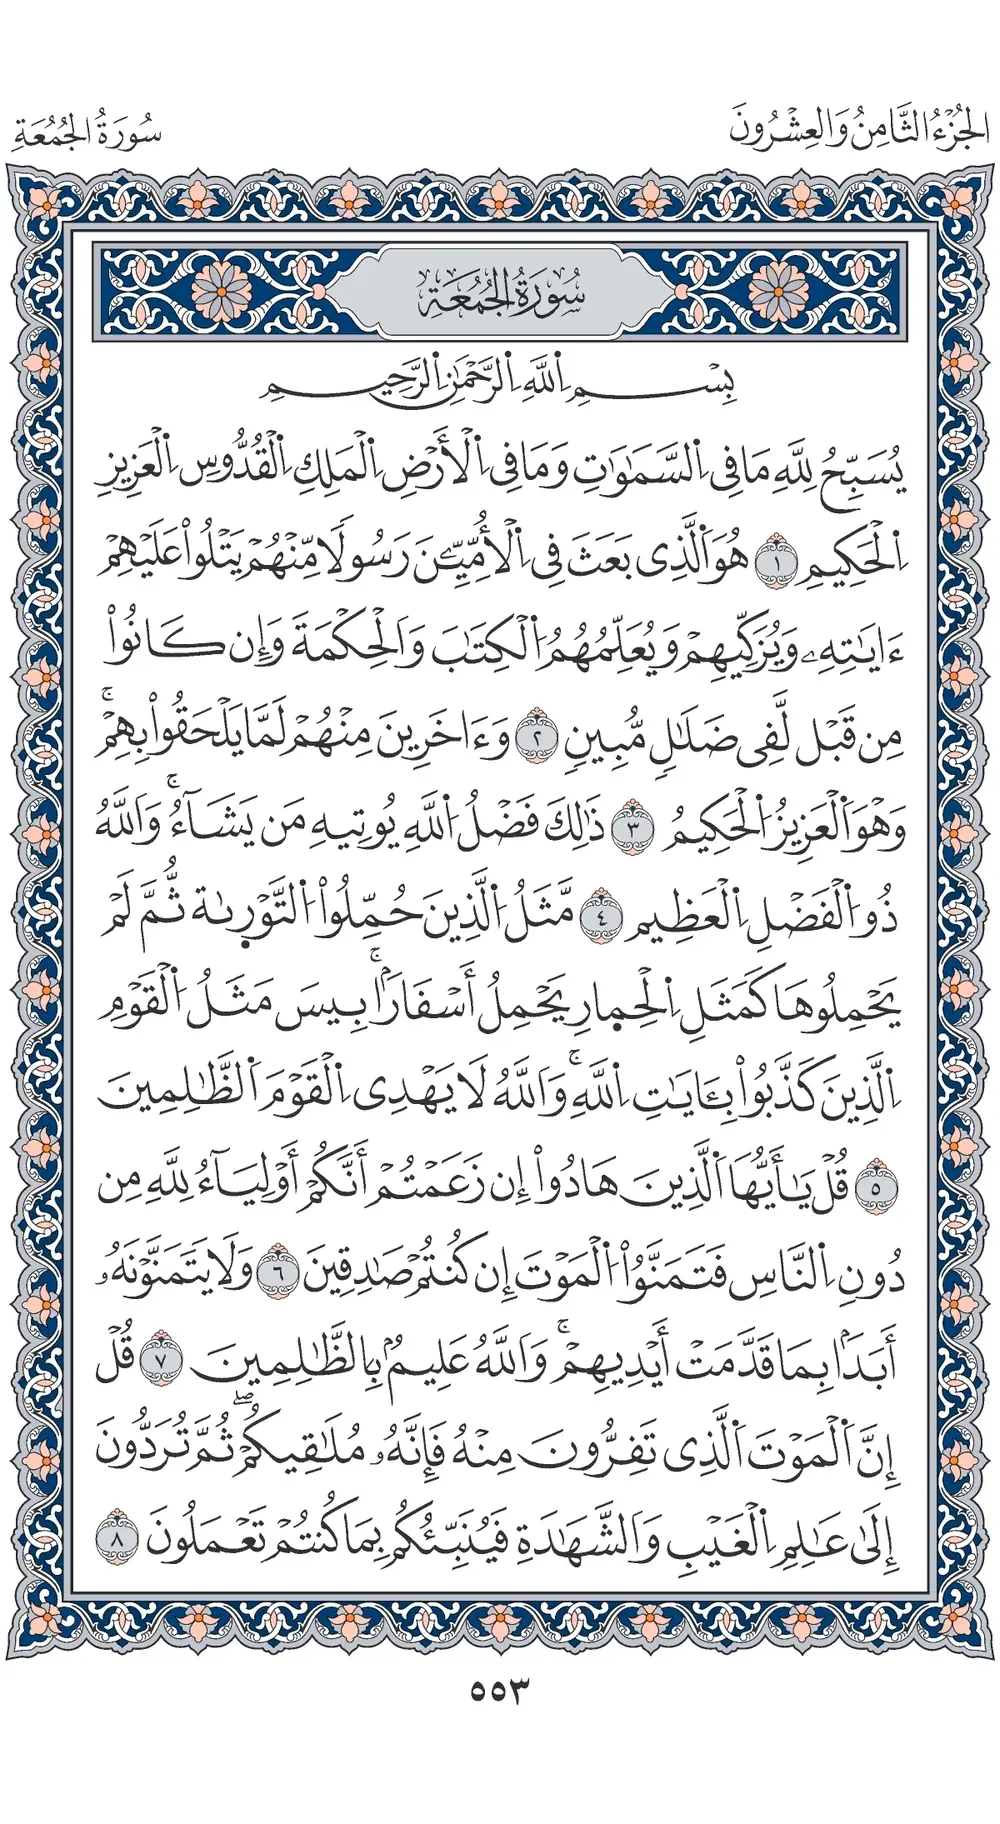 الجُزْءُ الثَّامِنُ وَالعِشْرُونَ
سُورَةُ الجُمُعَةِ
سُورَةُ الجُمُعَةِ
بِسْمِ اِ۬للَّهِ اِ۬لرَّحْمَٰنِ اِ۬لرَّحِيمِ
يُسَبِّحُ لِلَّهِ مَا فِى اِ۬لسَّمَٰوَٰتِ وَمَا فِى اِ۬لْأَرْضِ اِ۬لْمَلِكِ اِ۬لْقُدُّوسِ اِ۬لْعَزِيزِ
اِ۬لْحَكِيمِ ١ هُوَ اَ۬لَّذِى بَعَثَ فِى اِ۬لْأُمِّيِّـۧنَ رَسُولًا مِّنْهُمْ يَتْلُوا۟ عَلَيْهِمْ
ءَايَٰتِهِۦ وَيُزَكِّيهِمْ وَيُعَلِّمُهُمُ اُ۬لْكِتَٰبَ وَالْحِكْمَةَ وَإِن كَانُوا۟
مِن قَبْل لَّفِى ضَلَٰلٍ مُّبِينٍ ٢ وَءَاخَرِينَ مِنْهُمْ لَمَّا يَلْحَقُوا۟ بِهِمْۚ
وَهْوَ اَ۬لْعَزِيزُ اُ۬لْحَكِيمُ ٣ ذَٰلِكَ فَضْلُ اُ۬للَّهِ يُوتِيهِ مَن يَشَآءُۚ وَاللَّهُ
ذُو اُ۬لْفَضْلِ اِ۬لْعَظِيمِ ٤ مَّثَلُ اُ۬لَّذِينَ حُمِّلُوا۟ اُ۬لتَّوْرىٰةَ ثُمَّ لَمْ
يَحْمِلُوهَا كَمَثَلِ اِ۬لْحِمارِ يَحْمِلُ أَسْفَارَۢاۚ بِيسَ مَثَلُ اُ۬لْقَوْمِ
اِ۬لَّذِينَ كَذَّبُوا۟ بِـَٔايَٰتِ اِ۬للَّهِۚ وَاللَّهُ لَا يَهْدِى اِ۬لْقَوْمَ اَ۬لظَّٰلِمِينَ
٥ قُلْ يَٰٓأَيُّهَا اَ۬لَّذِينَ هَادُوا۟ إِن زَعَمْتُمْ أَنَّكُمْ أَوْلِيَآءُ لِلَّهِ مِن
دُونِ اِ۬لنَّاسِ فَتَمَنَّوُا۟ اُ۬لْمَوْتَ إِن كُنتُمْ صَٰدِقِينَ ٦ وَلَا يَتَمَنَّوْنَهُۥ
أَبَدَۢا بِمَا قَدَّمَتْ أَيْدِيهِمْۚ وَاللَّهُ عَلِيمُۢ بِالظَّٰلِمِينَ ٧ قُلْ
إِنَّ اَ۬لْمَوْتَ اَ۬لَّذِى تَفِرُّونَ مِنْهُ فَإِنَّهُۥ مُلَٰقِيكُمْۖ ثُمَّ تُرَدُّونَ
إِلَىٰ عَٰلِمِ اِ۬لْغَيْبِ وَالشَّهَٰدَةِ فَيُنَبِّئُكُم بِمَا كُنتُمْ تَعْمَلُونَ ٨
٥٥٣